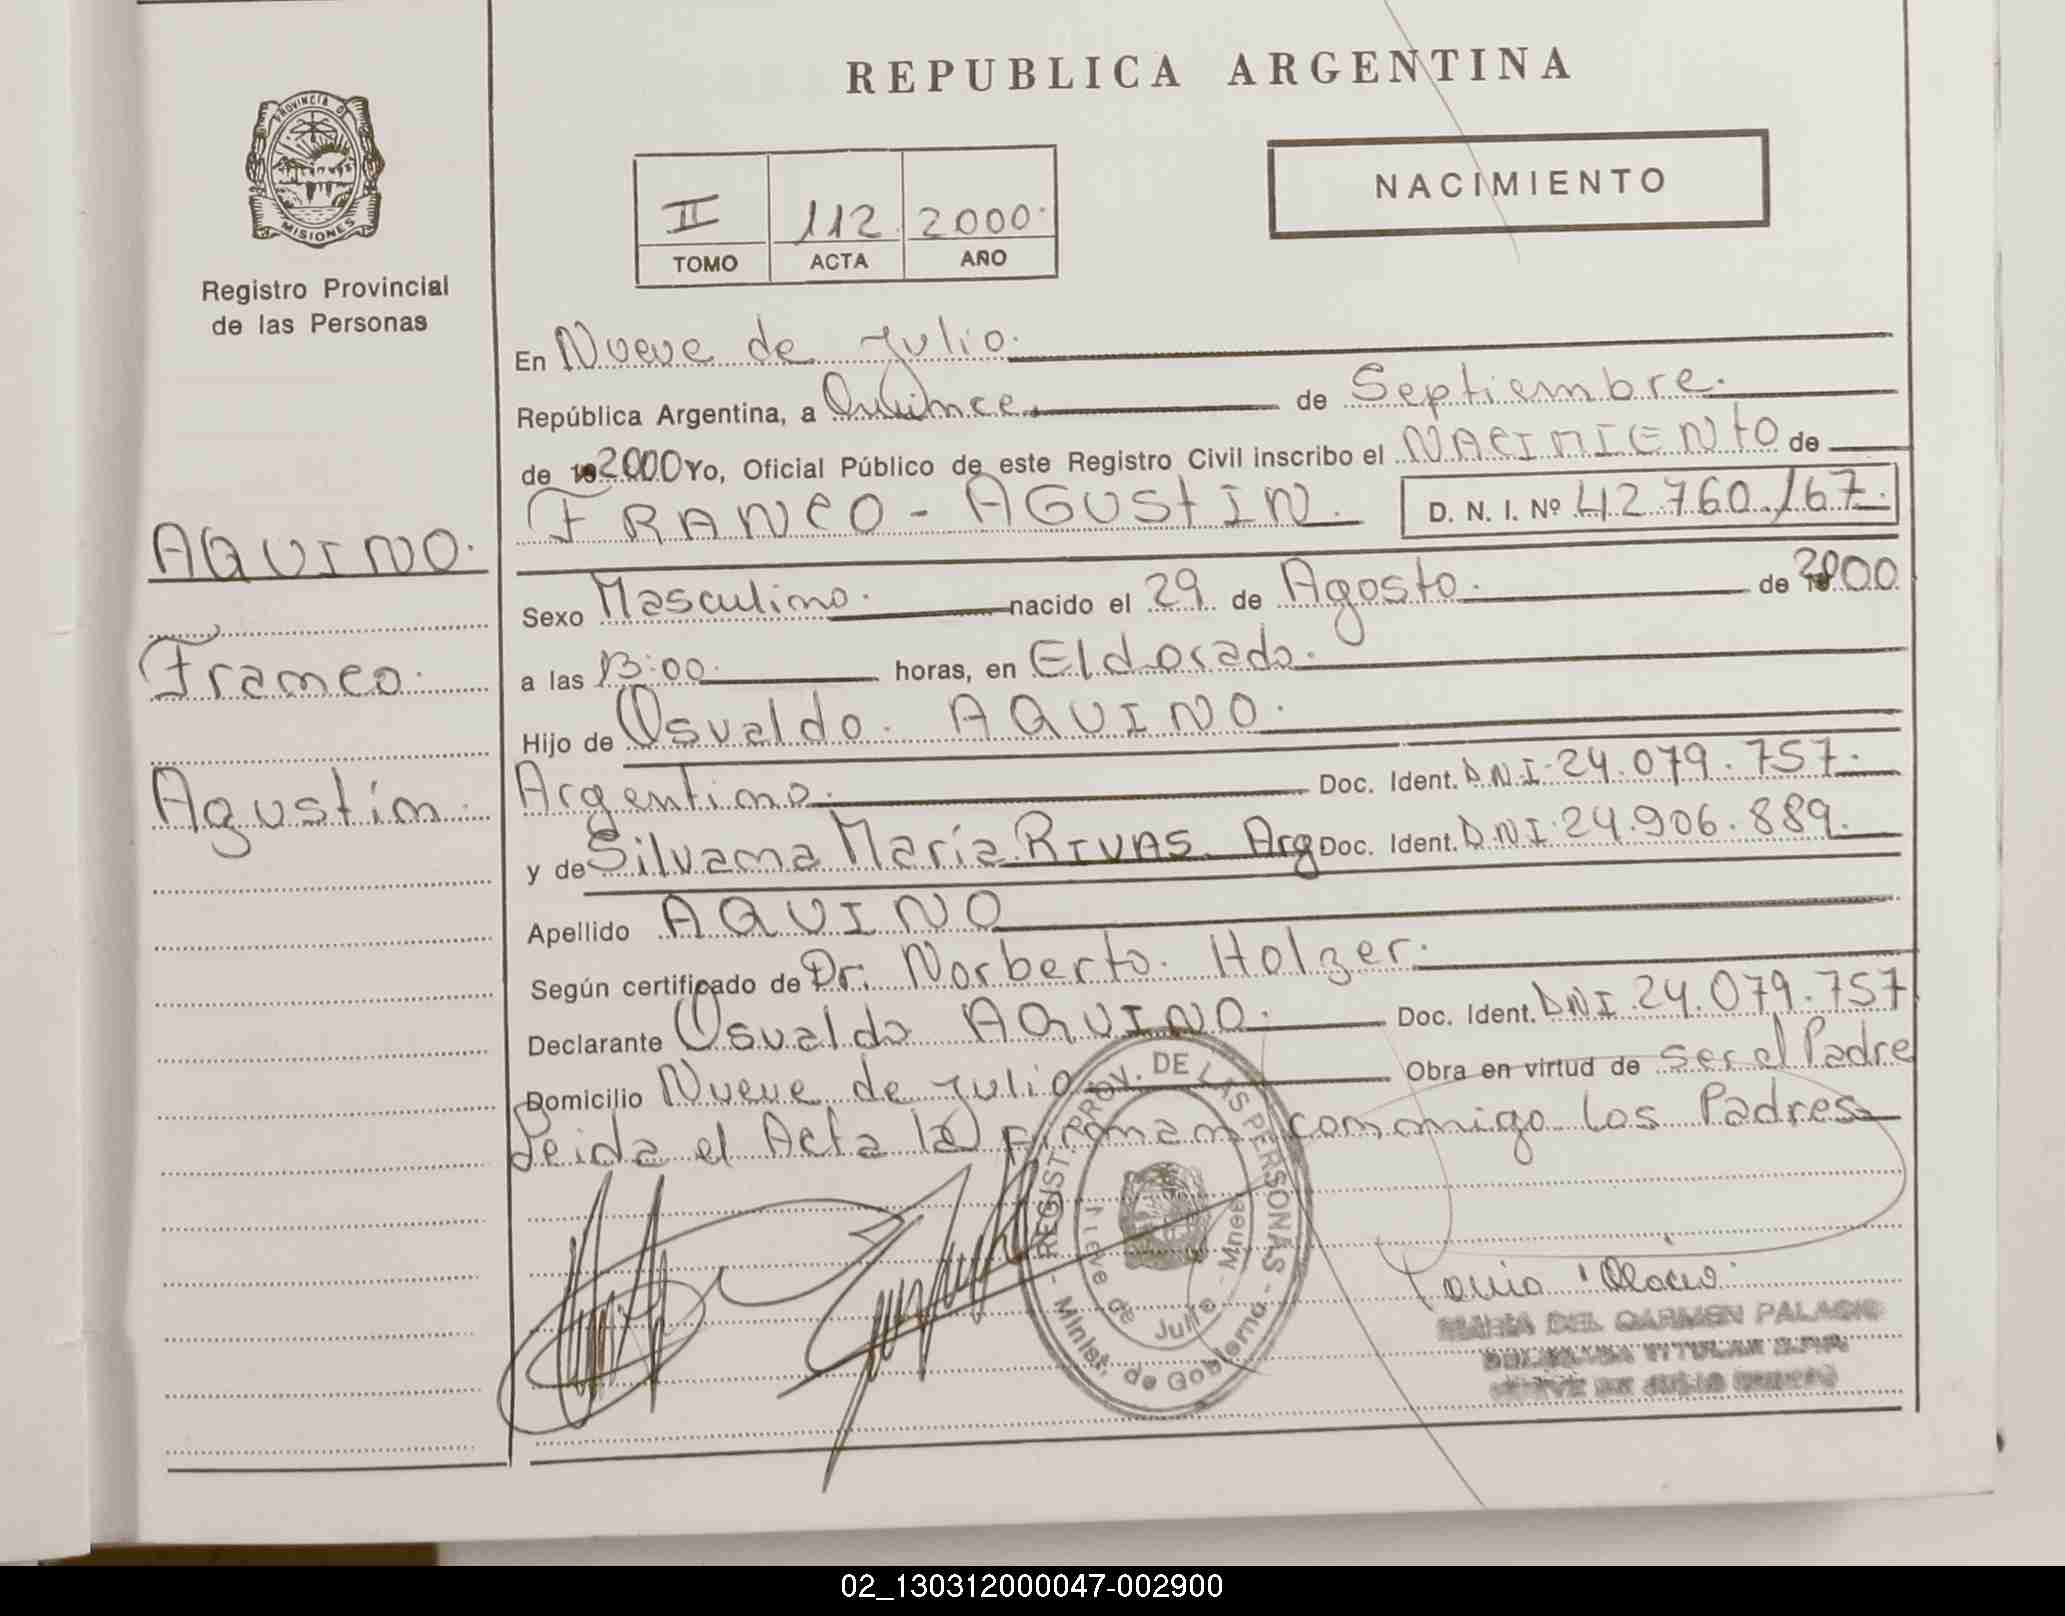 REPUBLICA ARGENTINA
PROVINCIA DE
MISIONES
Registro Provincial
de las Personas
II 112 2000.
TOMO ACTA AÑO
NACIMIENTO
En Nueve de Julio.
República Argentina, a Quince. de Septiembre.
de 192000 Yo, Oficial Público de este Registro Civil inscribo el NACIMIENTO de
FRANCO - AGUSTIN. D. N. I. Nº 42.760.167.
AQUINO.
Franco.
Agustín.
Sexo Masculino. nacido el 29 de Agosto. de 2000
a las 13:00. horas, en Eldorado.
Hijo de Osvaldo. AQUINO.
Argentino. Doc. Ident. DNI. 24.079.757.
y de Silvana María RIVAS. Arg Doc. Ident. DNI. 24.906.889.
Apellido AQUINO
Según certificado de Dr. Norberto. Holzer.
Declarante Osvaldo AQUINO. Doc. Ident. DNI. 24.079.757
Domicilio Nueve de Julio Obra en virtud de ser el Padre
Leida el Acta la firman conmigo los Padres
REGIST. PROV. DE LAS PERSONAS -
Minist. de Gobierno -
Nueve de Julio - Mnes
MARIA DEL CARMEN PALACIO
02_130312000047-002900